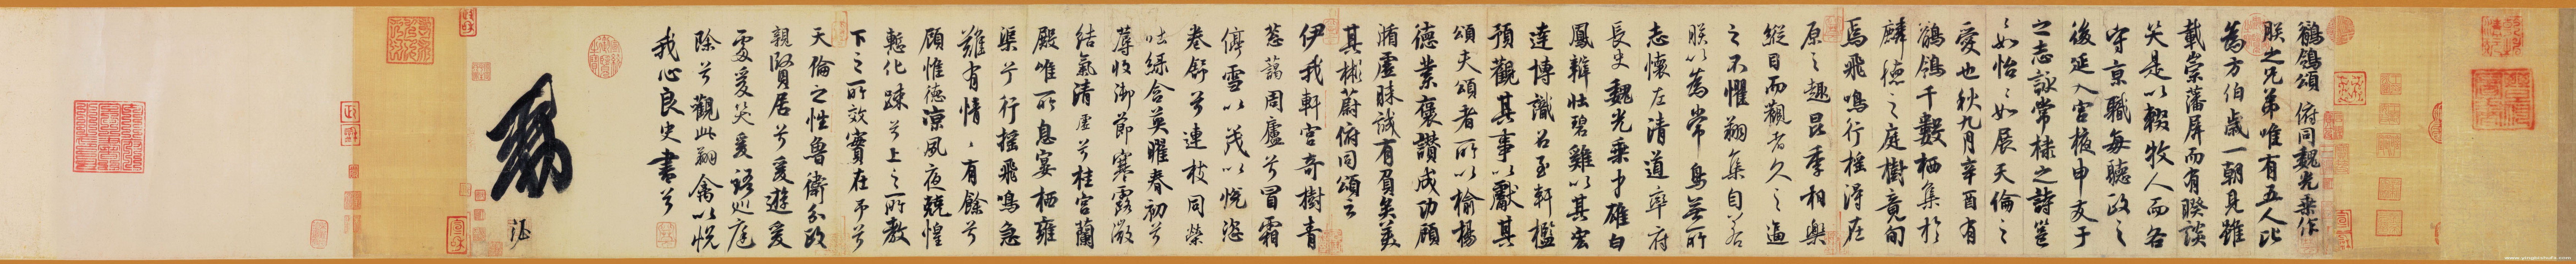 鶺鴒頌 俯同魏光乘作
朕之兄弟唯有五人比
為方伯歲一朝見雖
載崇藩屏而有睽談
笑是以輟牧人而各
守京職每聽政之
後延入宮掖申友于
之志詠常棣之詩邕
〻如怡〻如展天倫之
愛也秋九月辛酉有
鶺鴒千數栖集於
麟德之庭樹竟旬
焉飛鳴行搖得在
原之趣昆季相樂
縱目而觀者久之逼
之不懼翔集自若
朕以為常鳥無所
志懷左清道率府
長史魏光乘才雄白
鳳辯壯碧雞以其宏
達博識召至軒檻
預觀其事以獻其
頌夫頌者所以揄揚
德業褒讚成功顧
循虛昧誠有負矣美
其彬蔚俯同頌云
伊我軒宮奇樹青
蔥藹周廬兮冒霜
停雪以茂以悅恣
卷舒兮連枝同榮
吐綠含英曜春初兮
蓐收御節寒露微
結氣清虛兮桂宮蘭
殿唯所息宴栖雍
渠兮行搖飛鳴急
難有情〻有餘兮
顧惟德涼夙夜兢惶
慙化疎兮上之所教
下之所效實在予兮
天倫之性魯衛分政
親賢居兮爰遊爰
處爰笑爰語巡庭
除兮觀此翔禽以悅
我心良史書兮